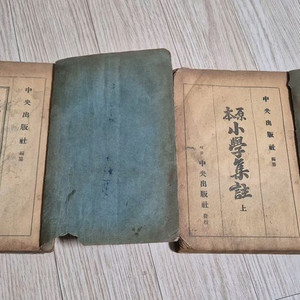 中央出版社
中央出版社
原本
小學集註 上
中央出版社 發行